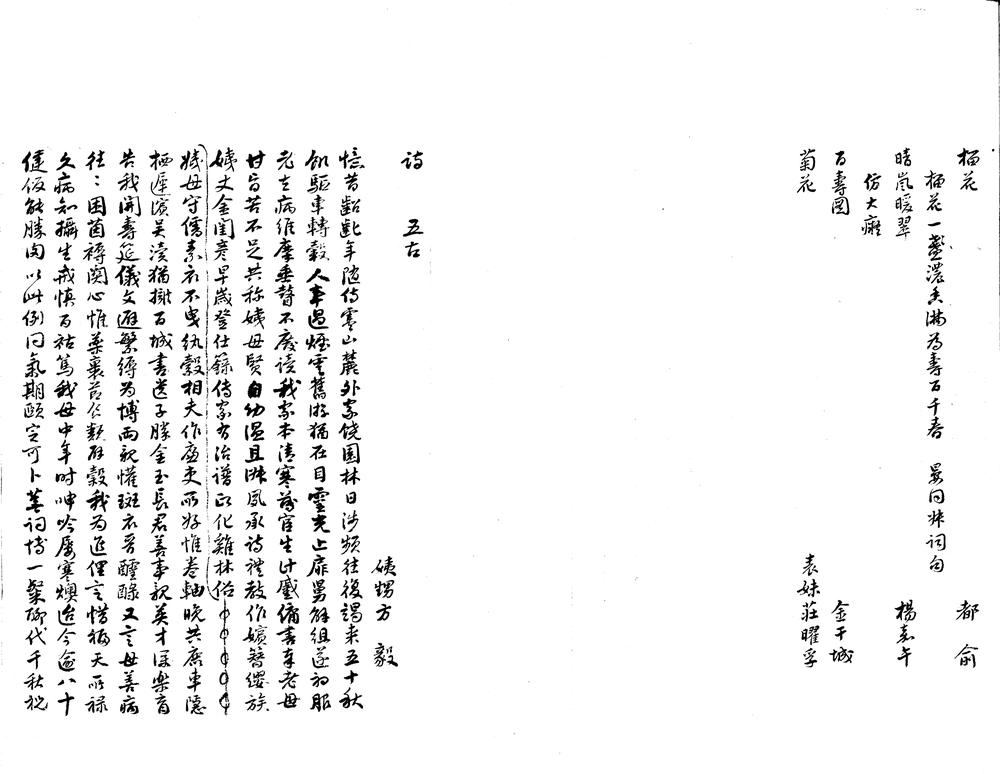 梅花 都俞
梅花一盞濃香滿為壽百千春 晏同叔詞句
晴嵐暖翠 楊嘉午
仿大癡
百壽圖 金干城
菊花 表妹莊曜孚
詩 五古
姨甥方毅
憶昔齠齔年隨侍寒山麓外家饒園林日涉頻往復竭來五十秋
飢驅車轉轂人事過煙雲舊游猶在目靈光上扉舅解組遂初服
元之病維摩垂瞽不廢讀我家本清寒薄宦生計蹙傭書奉老母
甘旨苦不足共称姨母賢自幼溫且淑夙承詩禮教作嬪簪纓族
姨丈金閨彥早歲登仕籙傳家有治譜政化雞林俗
姨母守儒素衣不曳紈縠相夫作廉吏所好惟卷軸晚共鹿車隱
栖遲濱吳淞猶擁百城書送子勝金玉長君善事親英才深樂育
告我開壽筵儀文避繁縟為博兩親懽斑衣晉醽醁又言母善病
往々困茵褥関心惟藥裹節飲類辟穀我為進俚言惜福天所祿
久病知攝生戒慎百祜篤我母中年時呻吟屢寒燠迨今逾八十
健飯能勝肉以此例同氣期頤定可卜蕪詞博一粲聊代千秋祝